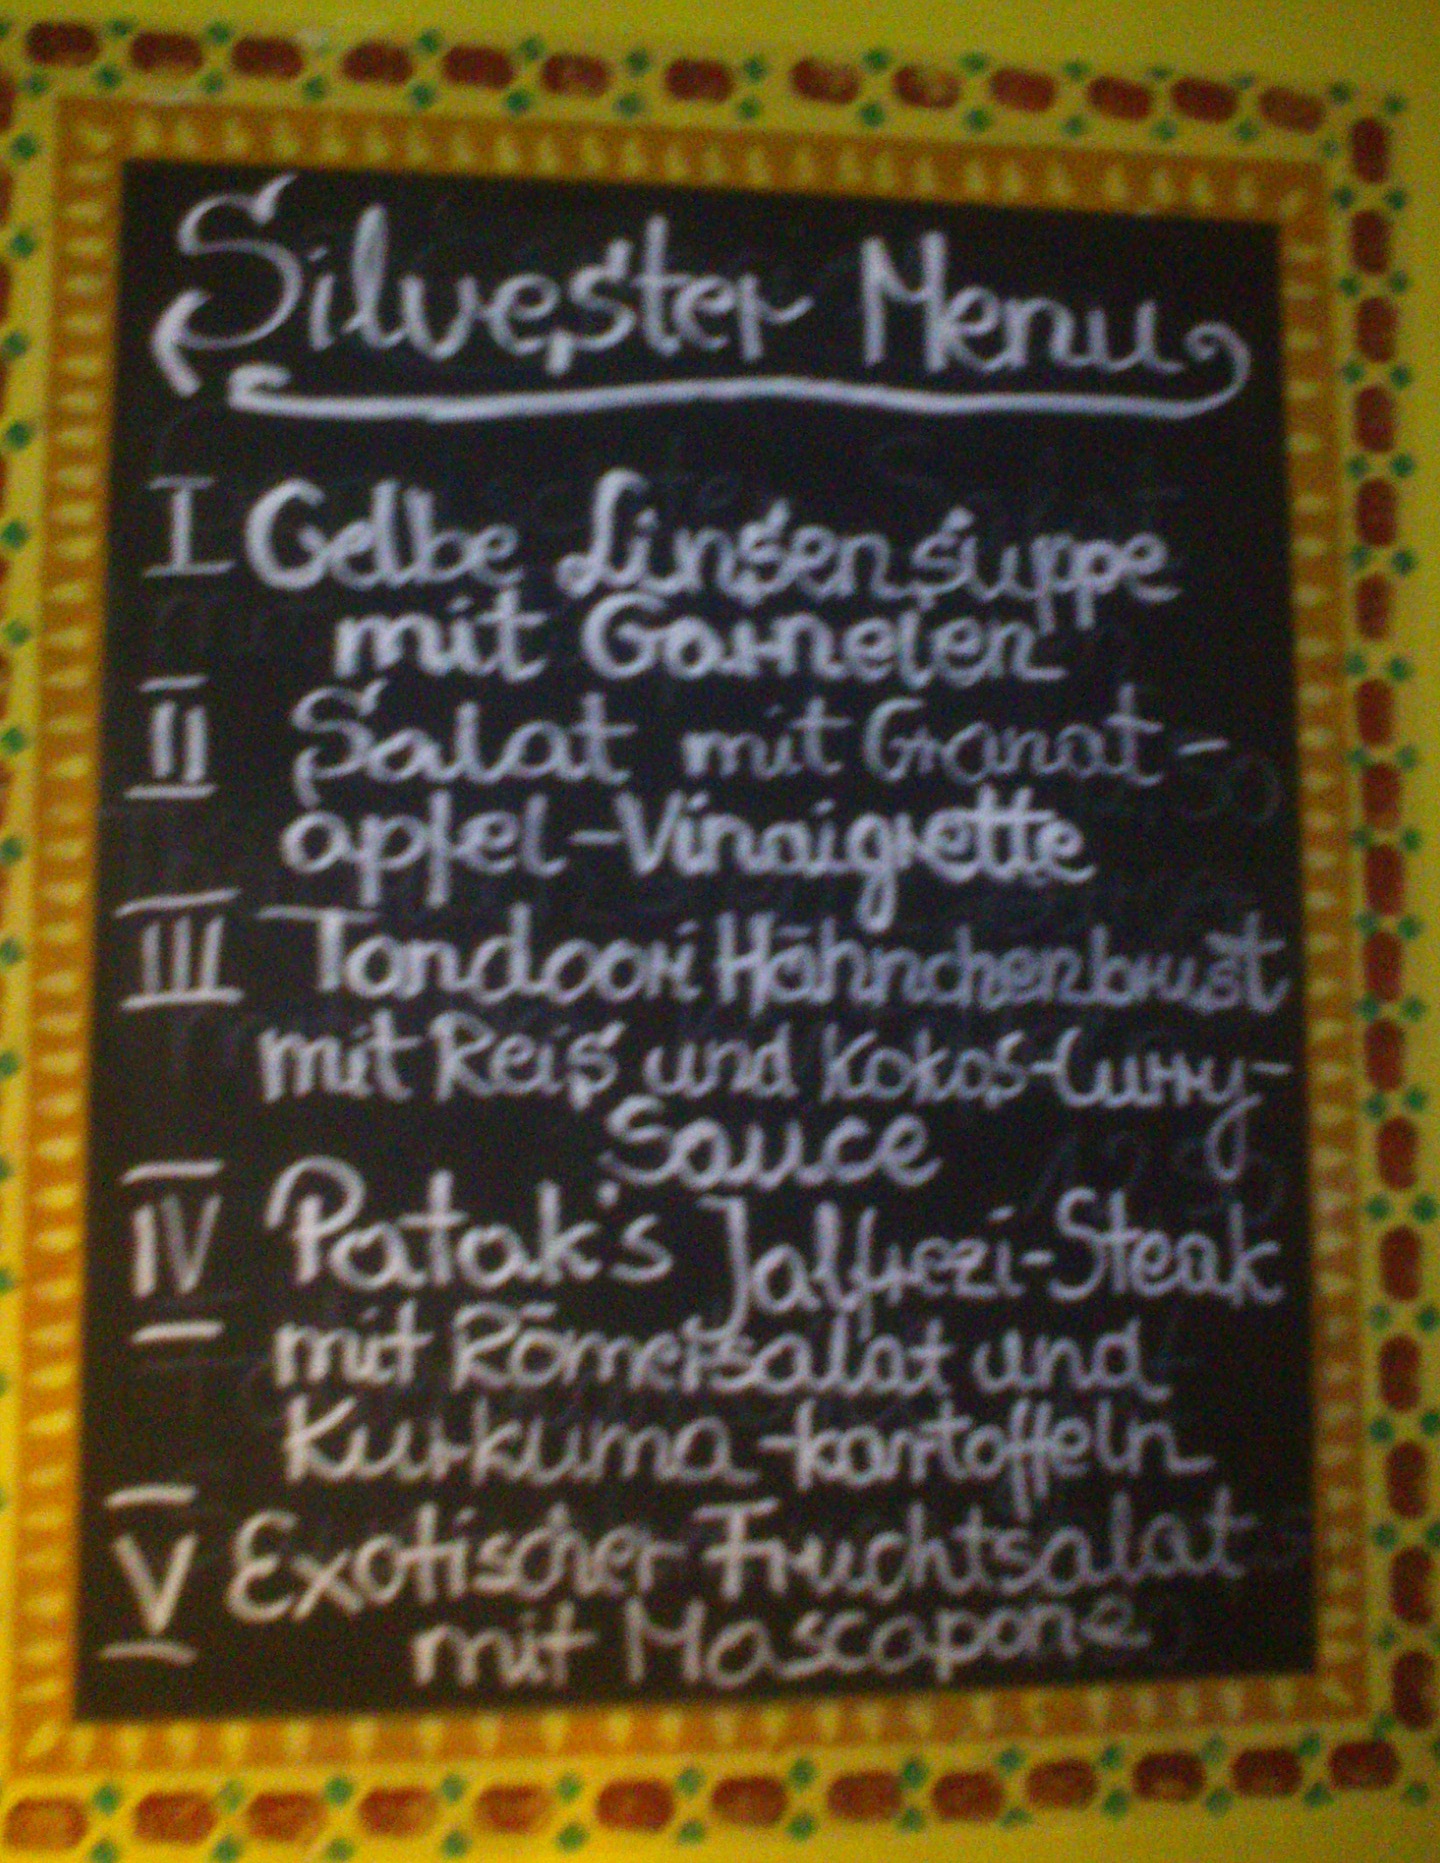 Silvester Menu
I Gelbe Linsensuppe
mit Garnelen
II Salat mit Granat-
apfel-Vinaigrette
III Tandoori Hähnchenbrust
mit Reis und Kokos-Curry-
Sauce
IV Patak's Jalfrezi-Steak
mit Römersalat und
Kurkuma-kartoffeln
V Exotischer Fruchtsalat
mit Mascapone